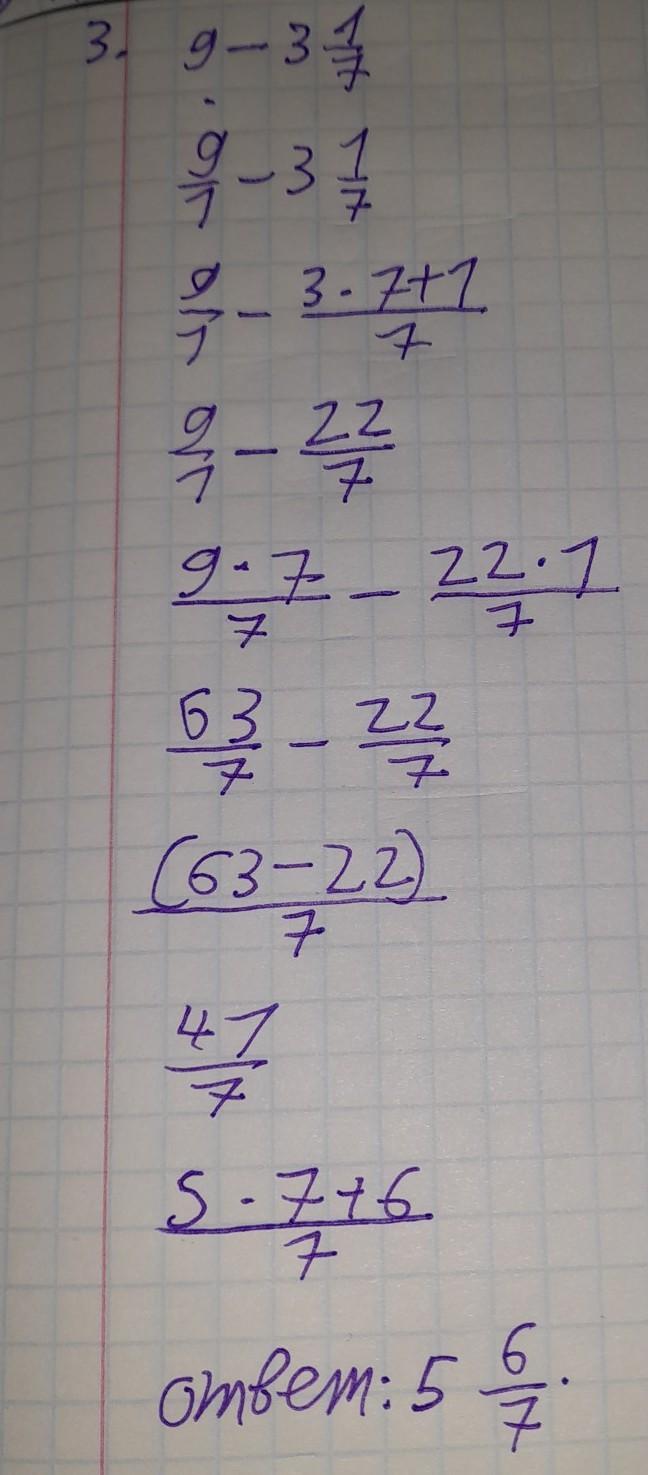 3. 9 - 3 1/7
9/1 - 3 1/7
9/1 - (3 · 7 + 1)/7
9/1 - 22/7
(9 · 7)/7 - (22 · 1)/7
63/7 - 22/7
(63 - 22)/7
41/7
(5 · 7 + 6)/7
ответ: 5 6/7.